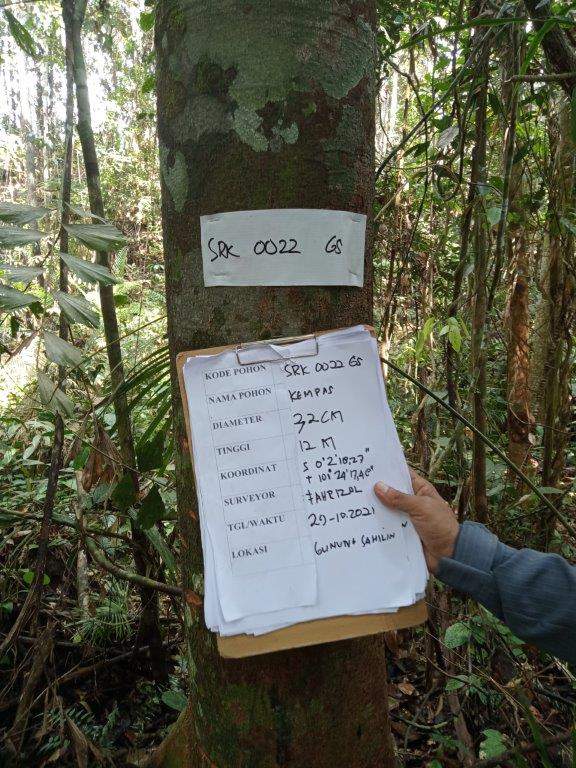 SRK 0022 GS
KODE POHON SRK 0022 GS
NAMA POHON KEMPAS
DIAMETER 32 CM
TINGGI 12 M
KOORDINAT S 0°2'18,27"
+ 101°24'17,46"
SURVEYOR FAHRIZAL
TGL/WAKTU 29-10.2021
LOKASI GUNUNG SAHILIN